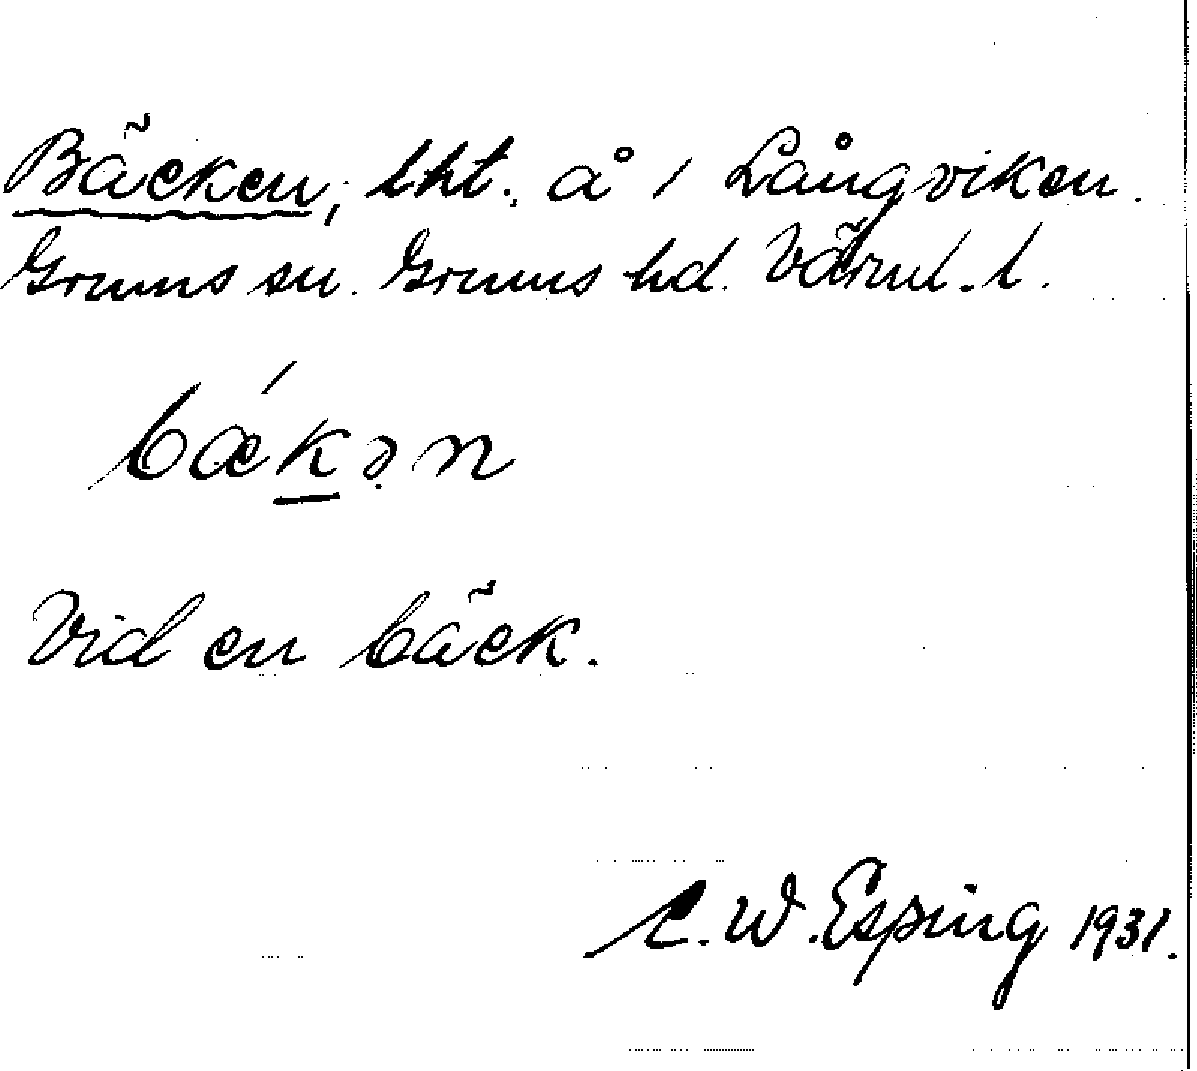 Bäcken, lht. å 1 Långviken.
Grums sn. Grums hd. Värml. l.
bǽkən
Vid en bäck.
C. W. Esping 1931.